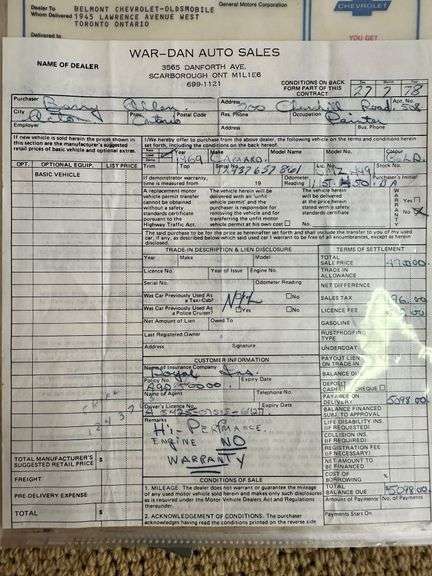 Dealer To BELMONT CHEVROLET-OLDSMOBILE
Whom Delivered 1945 LAWRENCE AVENUE WEST
TORONTO ONTARIO
General Motors Corporation
CHEVROLET
YOU GET
IS DELIVERED
NAME OF DEALER
WAR-DAN AUTO SALES
3565 DANFORTH AVE.
SCARBOROUGH ONT M1L1E6
699-1121
CONDITIONS ON BACK
FORM PART OF THIS
CONTRACT
27 7 78
Purchaser Barry Allen Address 700 Churchill Road Apt. No.
City Acton Prov. Ontario Postal Code Res. Phone Occupation Painter
Employer Address Bus. Phone
If new vehicle is sold herein the prices shown in
this section are the manufacturer's suggested
retail prices of basic vehicle and optional extras.
I/We hereby offer to purchase from the above dealer, the following vehicle on the terms and conditions herein
forth, including the conditions on the back.
Year 1969 Make CAMARO Model Name Model No. Colour
OPT. OPTIONAL EQUIP. LIST PRICE
Trim Top Stock No.
BASIC VEHICLE
If demonstrator warranty,
time is measured from 19
Odometer
Reading
Purchaser's Initial
B.A
A replacement motor
vehicle permit
cannot be obtained
without a vehicle
safety standards
certificate pursuant
to the
Highway Traffic Act.
The vehicle herein will
be delivered at an 'unfit'
vehicle and the
purchaser is responsible for
removing the vehicle and for
transferring the unfit motor
vehicle permit at his own cost
The vehicle herein
will be delivered
with a vehicle
safety standards
certificate.
WARRANTY
Yes
No
The said purchase to be for the price as hereinafter set forth and that include the transfer to you of my used
car, if any, as described below which said car I warrant to be free of all encumbrances, except as herein
disclosed.
TRADE-IN DESCRIPTION & LIEN DISCLOSURE
TERMS OF SETTLEMENT
Year Make Model
TOTAL
SALE PRICE
Licence No. Year of Issue Engine No.
TRADE IN
ALLOWANCE
Serial No. Odometer Reading
NET DIFFERENCE
Was Car Previously Used As
a Taxi-Cab?
NIL
No
SALES TAX
Was Car Previously Used As
a Police Cruiser?
Yes
No
LICENCE FEE
Net Amount of Lien Owed To
GASOLINE
Last Registered Owner
RUSTPROOFING
TYPE
Address Signature
UNDERCOAT
CUSTOMER INFORMATION
PAYOUT LIEN
ON TRADE-IN
Name of Insurance Company
Royal Ins.
BALANCE DUE
Policy No. Expiry Date
DEPOSIT
CASH CHEQUE
Name of Agent Telephone No.
PAYABLE ON
DELIVERY 5098.00
Driver's Licence No. Expiry Date
BALANCE FINANCED
SUBJ. TO APPROVAL
Remarks
Hi-PERFORMANCE
ENGINE NO
WARRANTY
LIFE DISABILITY INS
(IF REQUESTED)
COLLISION INS
(IF REQUIRED)
REGISTRATION FEE
(IF NECESSARY)
NET AMOUNT TO
BE FINANCED
TOTAL MANUFACTURER'S
SUGGESTED RETAIL PRICE $
COST OF
BORROWING
FREIGHT
CONDITIONS OF SALE
TOTAL
BALANCE DUE 5098.00
PRE-DELIVERY EXPENSE
1. MILEAGE: The dealer does not warrant or guarantee the mileage
of any used motor vehicle sold hereon and makes only such disclosures
as is required under the Motor Vehicle Dealers Act and Regulations
thereunder.
Amount of Payments No. of Payments
TOTAL $
2. ACKNOWLEDGEMENT OF CONDITIONS. The purchaser
acknowledges having read the conditions printed on the reverse side
Payments Start On